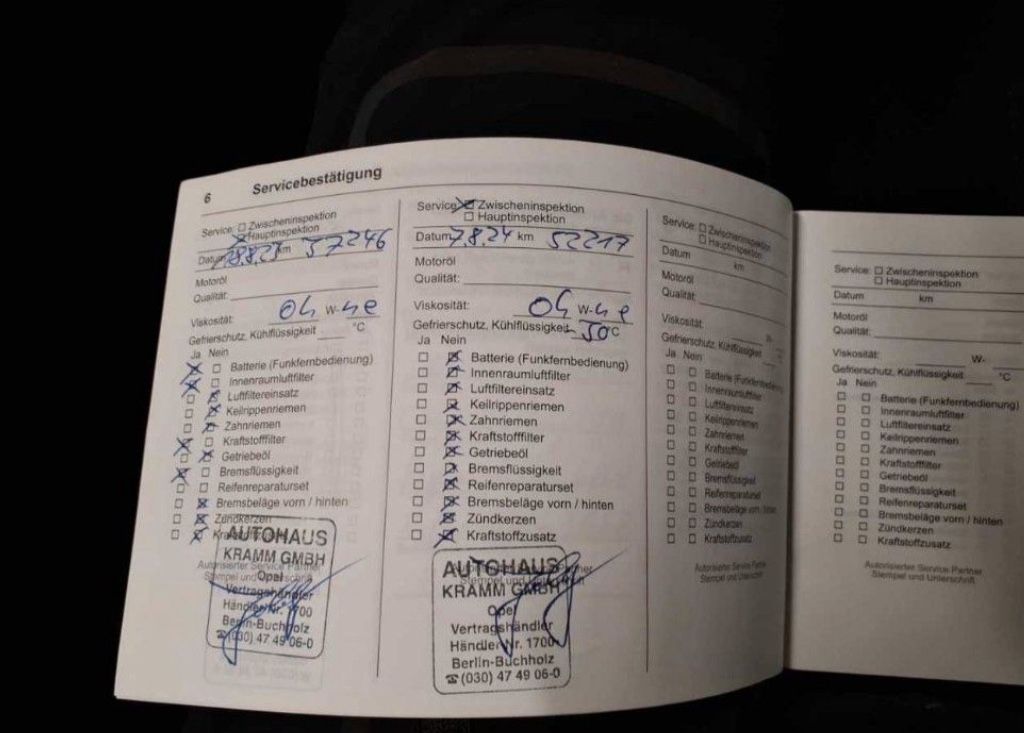 6 Servicebestätigung
Service: Zwischeninspektion
Hauptinspektion
Datum 28.8.23 km 37246
Motoröl
Qualität:
Viskosität: 04 W-
Gefrierschutz, Kühlflüssigkeit °C
Ja Nein
Batterie (Funkfernbedienung)
Innenraumluftfilter
Luftfiltereinsatz
Keilrippenriemen
Zahnriemen
Kraftstofffilter
Getriebeöl
Bremsflüssigkeit
Reifenreparaturset
Bremsbeläge vorn / hinten
Zündkerzen
AUTOHAUS
KRAMM GMBH
Autorisierter Service Partner
Opel
Stempel und
Vertragshändler
Händler Nr. 1700
Berlin-Buchholz
☎(030) 47 49 06-0
Service: Zwischeninspektion
Hauptinspektion
Datum 7.8.24 km 52217
Motoröl
Qualität:
Viskosität: W-
Gefrierschutz, Kühlflüssigkeit 50°C
Ja Nein
Batterie (Funkfernbedienung)
Innenraumluftfilter
Luftfiltereinsatz
Keilrippenriemen
Zahnriemen
Kraftstofffilter
Getriebeöl
Bremsflüssigkeit
Reifenreparaturset
Bremsbeläge vorn / hinten
Zündkerzen
Kraftstoffzusatz
AUTOHAUS
Stempel und Unterschrift
KRAMM GMBH
Opel
Vertragshändler
Händler Nr. 1700
Berlin-Buchholz
☎(030) 47 49 06-0
Service: Zwischeninspektion
Hauptinspektion
Datum km
Motoröl
Qualität:
Viskosität: W-
Gefrierschutz, Kühlflüssigkeit °C
Ja Nein
Batterie (Funkfernbedienung)
Innenraumluftfilter
Luftfiltereinsatz
Keilrippenriemen
Zahnriemen
Kraftstofffilter
Getriebeöl
Bremsflüssigkeit
Reifenreparaturset
Bremsbeläge vorn / hinten
Zündkerzen
Kraftstoffzusatz
Autorisierter Service Partner
Stempel und Unterschrift
Service: Zwischeninspektion
Hauptinspektion
Datum km
Motoröl
Qualität:
Viskosität: W-
Gefrierschutz, Kühlflüssigkeit °C
Ja Nein
Batterie (Funkfernbedienung)
Innenraumluftfilter
Luftfiltereinsatz
Keilrippenriemen
Zahnriemen
Kraftstofffilter
Getriebeöl
Bremsflüssigkeit
Reifenreparaturset
Bremsbeläge vorn / hinten
Zündkerzen
Kraftstoffzusatz
Autorisierter Service Partner
Stempel und Unterschrift